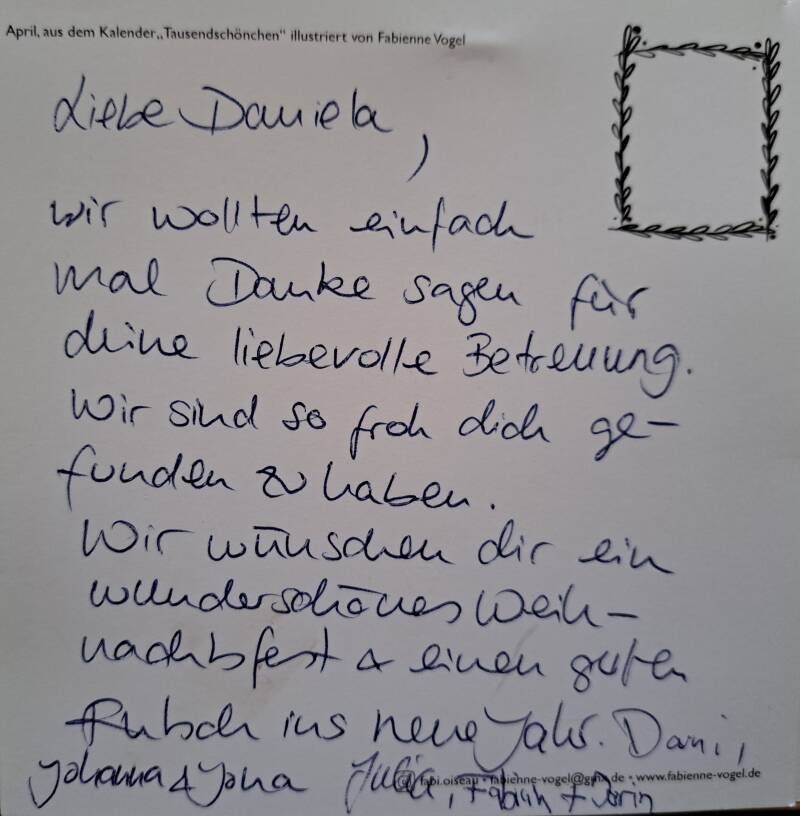 April, aus dem Kalender „Tausendschönchen“ illustriert von Fabienne Vogel
Liebe Daniela,
wir wollten einfach
mal Danke sagen für
deine liebevolle Betreuung.
Wir sind so froh dich ge-
funden zu haben.
Wir wünschen dir ein
wunderschönes Weih-
nachtsfest & einen guten
Rutsch ins neue Jahr. Dani,
Johanna & Jona Julia,
fabi.oiseau • fabienne-vogel@gmx.de • www.fabienne-vogel.de